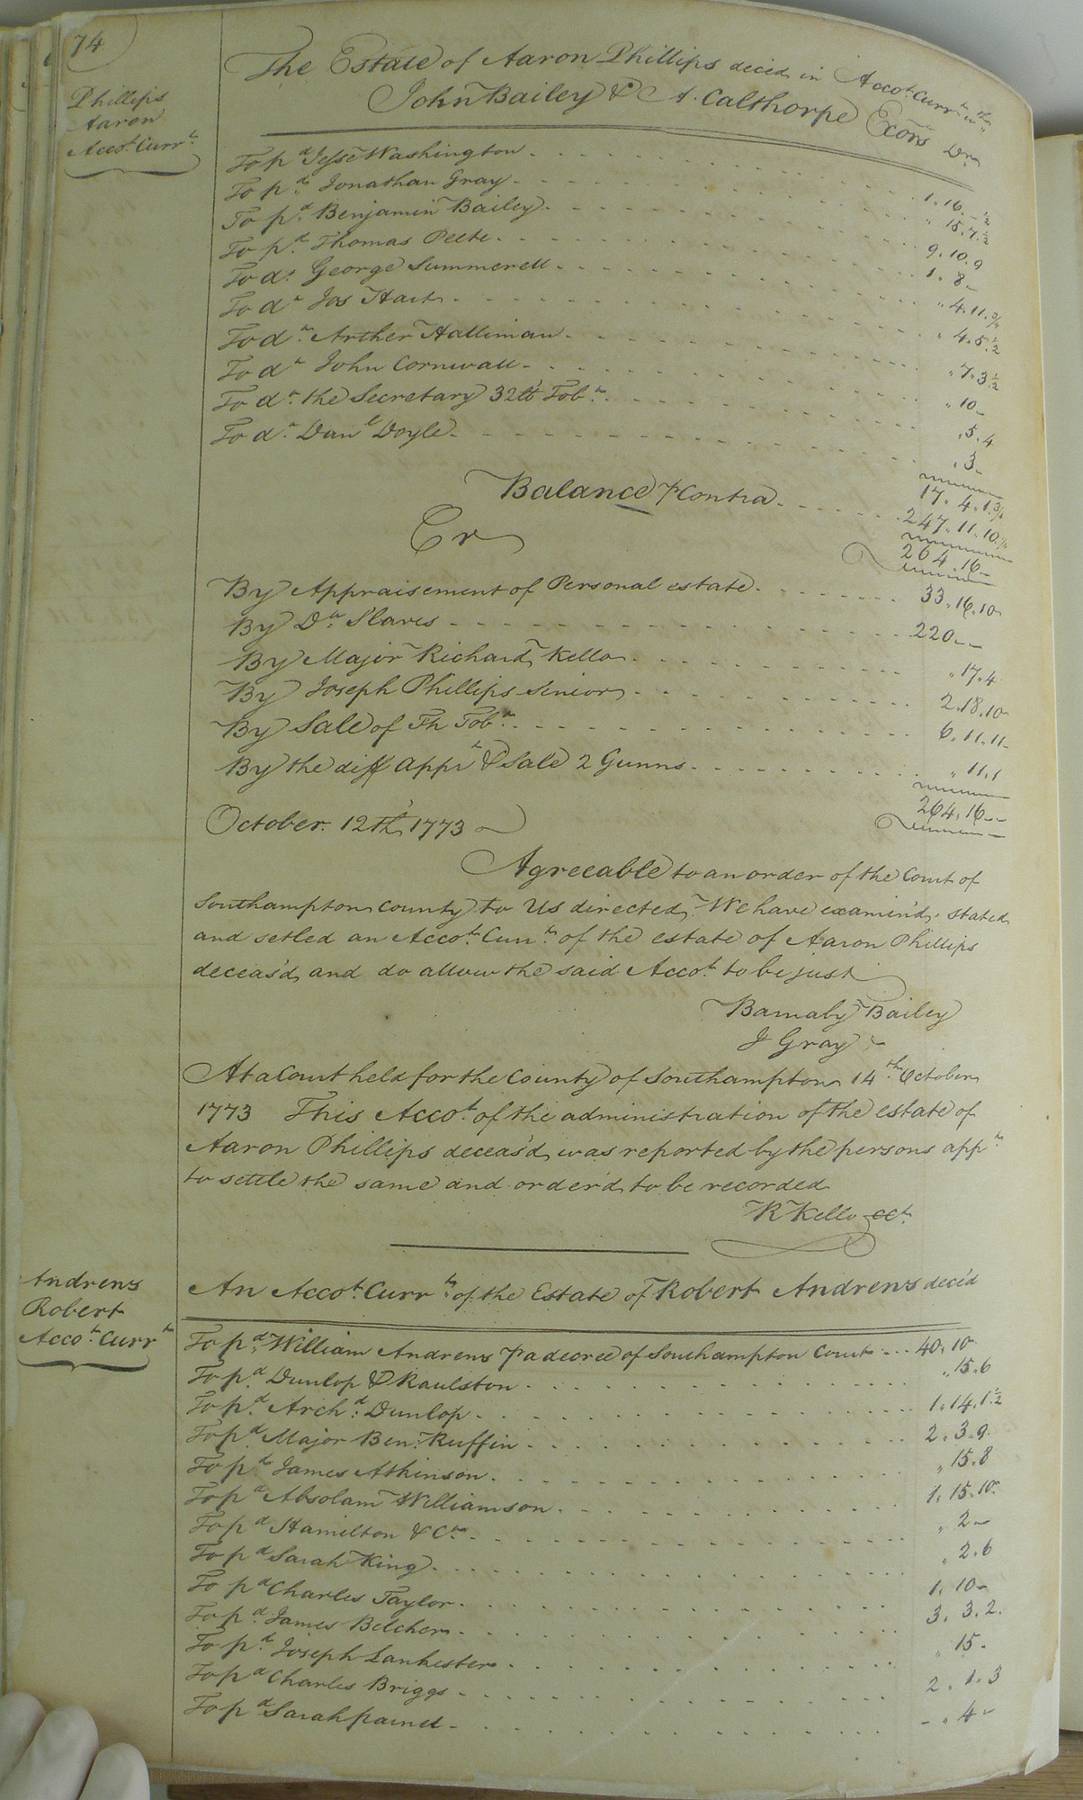 74
Phillips
Aaron
Acco.t Curr.t
The Estate of Aaron Phillips deced in Acco.t Curr.t with
John Bailey & A. Calthorpe Exors Dr
To p.d Jesse Washington 1.16.-½
To p.d Jonathan Gray " 15.7½
To p.d Benjamin Bailey 9.10.9
To p.d Thomas Peete 1.8-
To d.o George Summerell " 4.11.¾
To d.o Jos Hart " 4.5.½
To d.o Arther Halliman " 7.3½
To d.o John Cornwall " 10-
To d.o the Secretary 32 lb Tob.o " 5.4
To d.o Dan.l Doyle " 3-
17.4.1¾
Balance ⅌ Contra 247.11.10¼
264.16-
Cr
By Appraisement of Personal estate 33.16.10
By D.o Slaves 220--
By Major Richard Kello " 17.4
By Joseph Phillips Senior 2.18.10
By Sale of Tob.o 6.11.11
By the diff app.t & Sale 2 Gunns " 11.1
264.16--
October 12th 1773
Agreeable to an order of the Court of
Southampton County to Us directed, We have examin'd, stated
and setled an Acco.t Curr.t of the estate of Aaron Phillips
deceas'd, and do allow the said Acco.t to be just
Barnaby Bailey
J Gray
At a Court held for the County of Southampton 14.th October
1773 This Acco.t of the administration of the estate of
Aaron Phillips deceas'd, was reported by the persons app.td
to settle the same and order'd to be recorded
R Kello CCt.
Andrews
Robert
Acco.t Curr.t
An Acco.t Curr.t of the Estate of Robert Andrews dece'd
To p.d William Andrews ⅌ a decree of Southampton Court 40.10
To p.d Dunlop & Raulston " 15.6
To p.d Arch.d Dunlop 1.14.1½
To p.d Major Ben: Ruffin 2.3.9
To p.d James Atkinson " 15.8
To p.d Absolam Williamson 1.15.10
To p.d Hamilton & C.o " 2-
To p.d Sarah King " 2.6
To p.d Charles Taylor 1.10-
To p.d James Belcher 3.3.2.
To p.d Joseph Lankester " 15-
To p.d Charles Briggs 2.1.3
To p.d Sarah -"4-